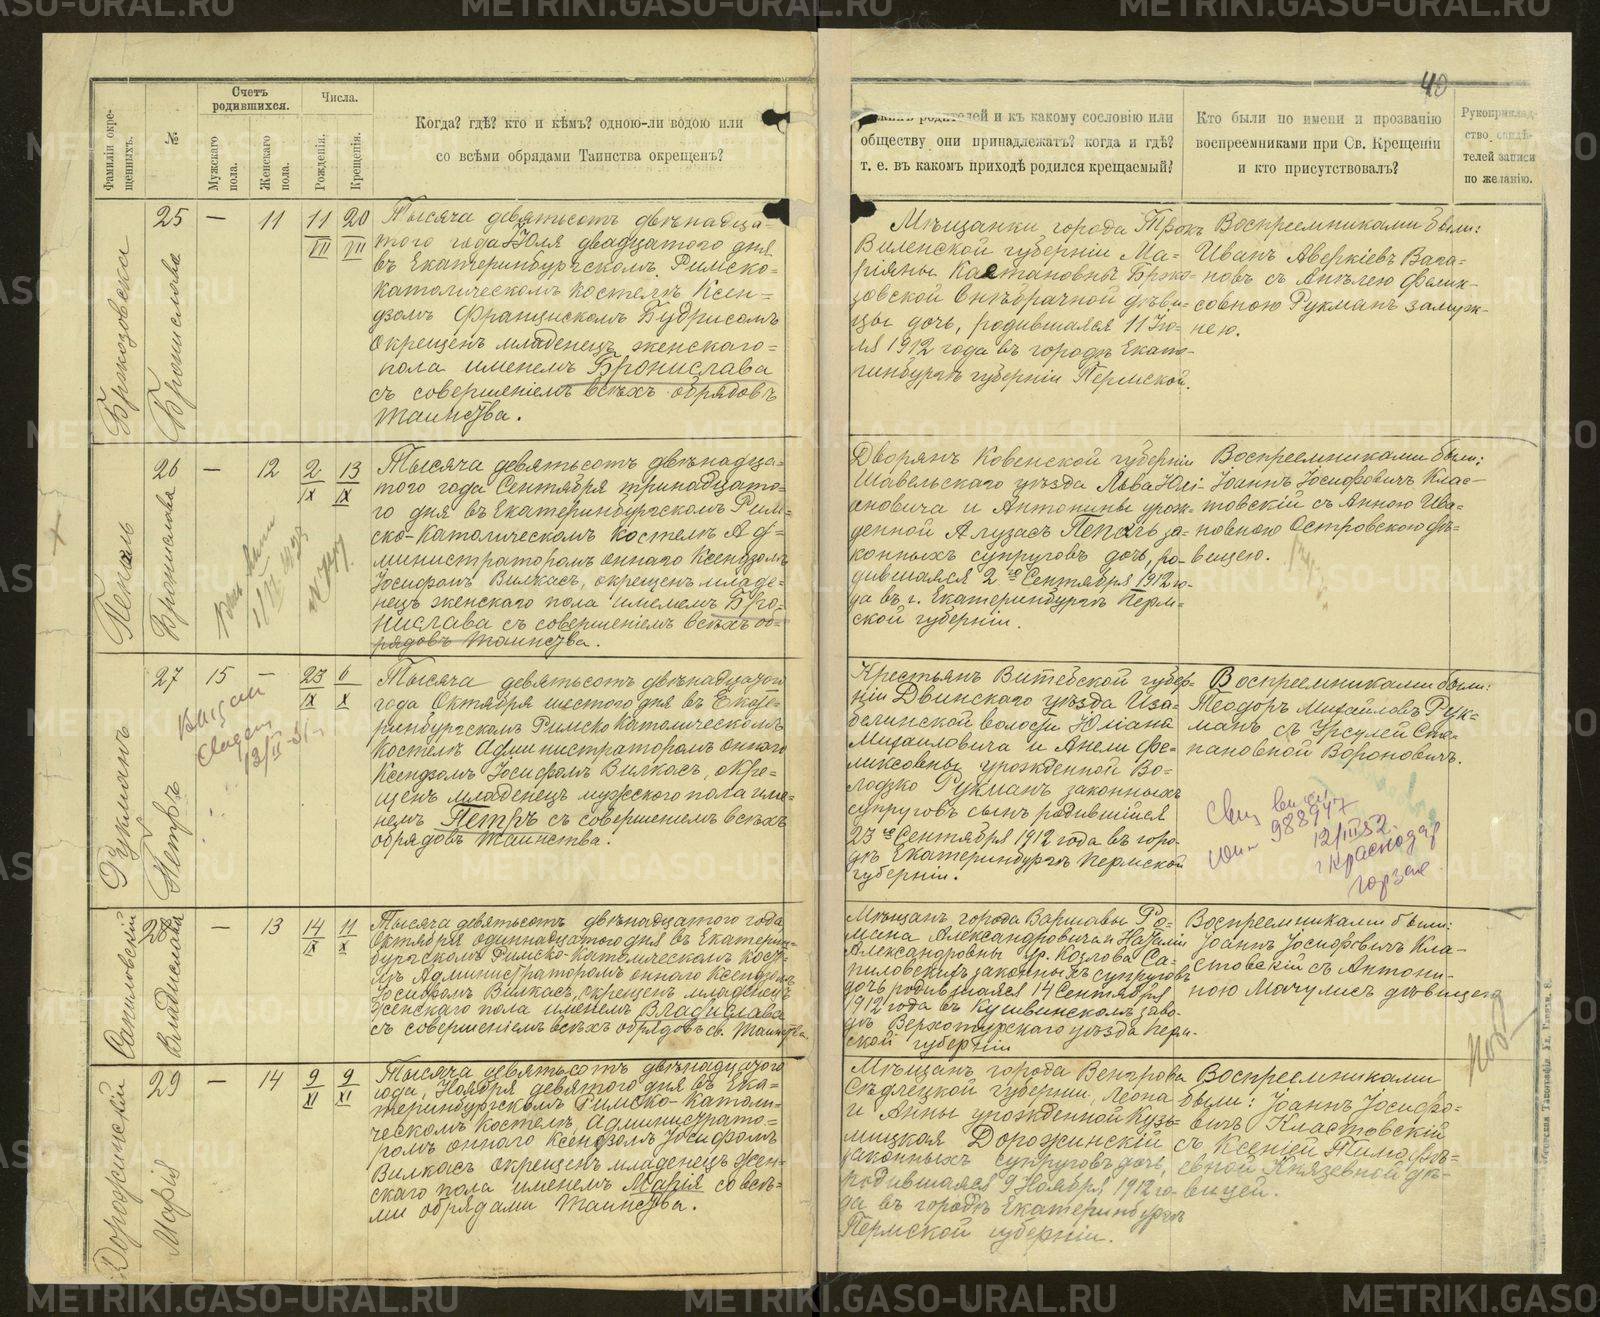 40
Фамиліи окре-
щенныхъ.
№.
Счетъ
родившихся.
Мужскаго
пола.
Женскаго
пола.
Числа.
Рожденія.
Крещенія.
Когда? гдѣ? кто и кѣмъ? одною-ли водою или
со всѣми обрядами Таинства окрещенъ?
родителей и къ какому сословію или
обществу они принадлежатъ? когда и гдѣ?
т. е. въ какомъ приходѣ родился крещаемый?
Кто были по имени и прозванію
воспреемниками при Св. Крещеніи
и кто присутствовалъ?
Рукоприклад-
ство свидѣ-
телей записи
по желанію.
Бржозовская
Бронислава
25 — 11 11/VII 20/VII
Тысяча девятьсотъ двѣнадца-
таго года Юля двадцатого дня
въ Екатеринбургскомъ Римско-
католическомъ костелѣ Ксен-
дзомъ Францискомъ Будрисомъ
окрещенъ младенецъ женскаго-
пола именемъ Бронислава
съ совершеніемъ всѣхъ обрядовъ
таинства.
Мѣщанки города Трокъ
Виленской губерніи Ма-
ріяны Каетановны Бржо-
зовской внѣбрачной дѣви-
цы дочь, родившаяся 11 Ію-
ля 1912 года въ городѣ Екате-
ринбургѣ губерніи Пермской.
Воспреемниками были:
Иванъ Аверкіевъ Вага-
новъ съ Анѣлею Фелик-
совною Рукманъ замуж-
нею.
Пепель
Бронислава
26 — 12 2/IX 13/IX
Тысяча девятьсотъ двѣнадца-
того года Сентября тринадцато-
го дня въ Екатеринбургскомъ Рим-
ско-Католическомъ костелѣ Ад-
министраторомъ оннаго Ксендзомъ
Іосифомъ Вилкасъ, окрещенъ младе-
нецъ женскаго пола именемъ Бро-
нислава съ совершеніемъ всѣхъ об-
рядовъ таинства.
Дворянъ Ковенской губерніи
Шавельскаго уѣзда Льва Юлі-
ановича и Антонины урож-
денной Алузасъ Пепель за-
конныхъ супруговъ дочь, ро-
дившаяся 2го Сентября 1912 го-
да въ г. Екатеринбургѣ Перм-
ской губерніи.
Воспреемниками были:
Іоаннъ Іосифовичъ Клас-
товскій съ Анною Ива-
новною Островскою дѣ-
вицею.
Рукманъ
Петръ
27 15 — 23/IX 6/X
Тысяча девятьсотъ двѣнадцатого
года Октября шестого дня въ Екате-
ринбургскомъ Римско Католическомъ
Костелѣ Администраторомъ оннаго
Ксендзомъ Іосифомъ Вилкасъ, окре-
щенъ младенецъ мужского пола име-
немъ Петръ съ совершеніемъ всѣхъ
обрядовъ таинства.
Крестьянъ Витебской губер-
ніи Двинскаго уѣзда Иза-
белинской волости Юліана
Михаиловича и Анели Фе-
ликсовны урожденной Во-
лодзко Рукманъ законныхъ
супруговъ сынъ родившійся
23го Сентября 1912 года въ горо-
дѣ Екатеринбургѣ Пермской
губерніи.
Воспреемниками были:
Теодоръ Михайловъ Рук-
манъ съ Урсулей Сте-
пановной Вороновичъ.
988947
12/III 52.
г. Краснодар
горзаг
Сапиловскій
Владислава
28 — 13 14/IX 11/X
Тысяча девятьсотъ двѣнадцатого года
Октября одиннадцатого дня въ Екатерин-
бургскомъ Римско-Католическомъ Косте-
лѣ Администраторомъ оннаго Ксендзомъ
Іосифомъ Вилкасъ, окрещенъ младенецъ
женскаго пола именемъ Владислава
съ совершеніемъ всѣхъ обрядовъ св. таинства.
Мѣщанъ города Варшавы Ро-
мана Александровича и Наталіи
Александровны ур. Козлова Са-
пиловскихъ законныхъ супруговъ
дочь родившаяся 14 Сентября
1912 года въ Кушвинскомъ заво-
дѣ Верхотурскаго уѣзда Перм-
ской губерніи
Воспреемниками были:
Іоаннъ Іосифовичъ Кла-
стовскій съ Антони-
ною Мачулисъ дѣвицею
Дорожинскій
Марія
29 — 14 9/XI 9/XI
Тысяча девятьсотъ двѣнадцатого
года, Ноября девятого дня въ Ека-
теринбургскомъ Римско-Католи-
ческомъ костелѣ, Администрато-
ромъ оннаго Ксендзомъ Іосифомъ
Вилкасъ окрещенъ младенецъ жен-
скаго пола именемъ Марія со всѣ-
ми обрядами таинства.
Мѣщанъ города Венгрова
Сѣдлецкой губерніи, Леона
и Анны урожденной Кузь-
мицкая Дорожинскій
законныхъ супруговъ дочь,
родившаяся 9 Ноября 1912 го-
да въ городѣ Екатеринбургѣ
Пермской губерніи.
Воспреемниками
были: Іоаннъ Іосифо-
вичъ Кластовскій
съ Ксеніей Тимофѣ-
евной Князевной дѣ-
вицей.
METRIKI.GASO-URAL.RU